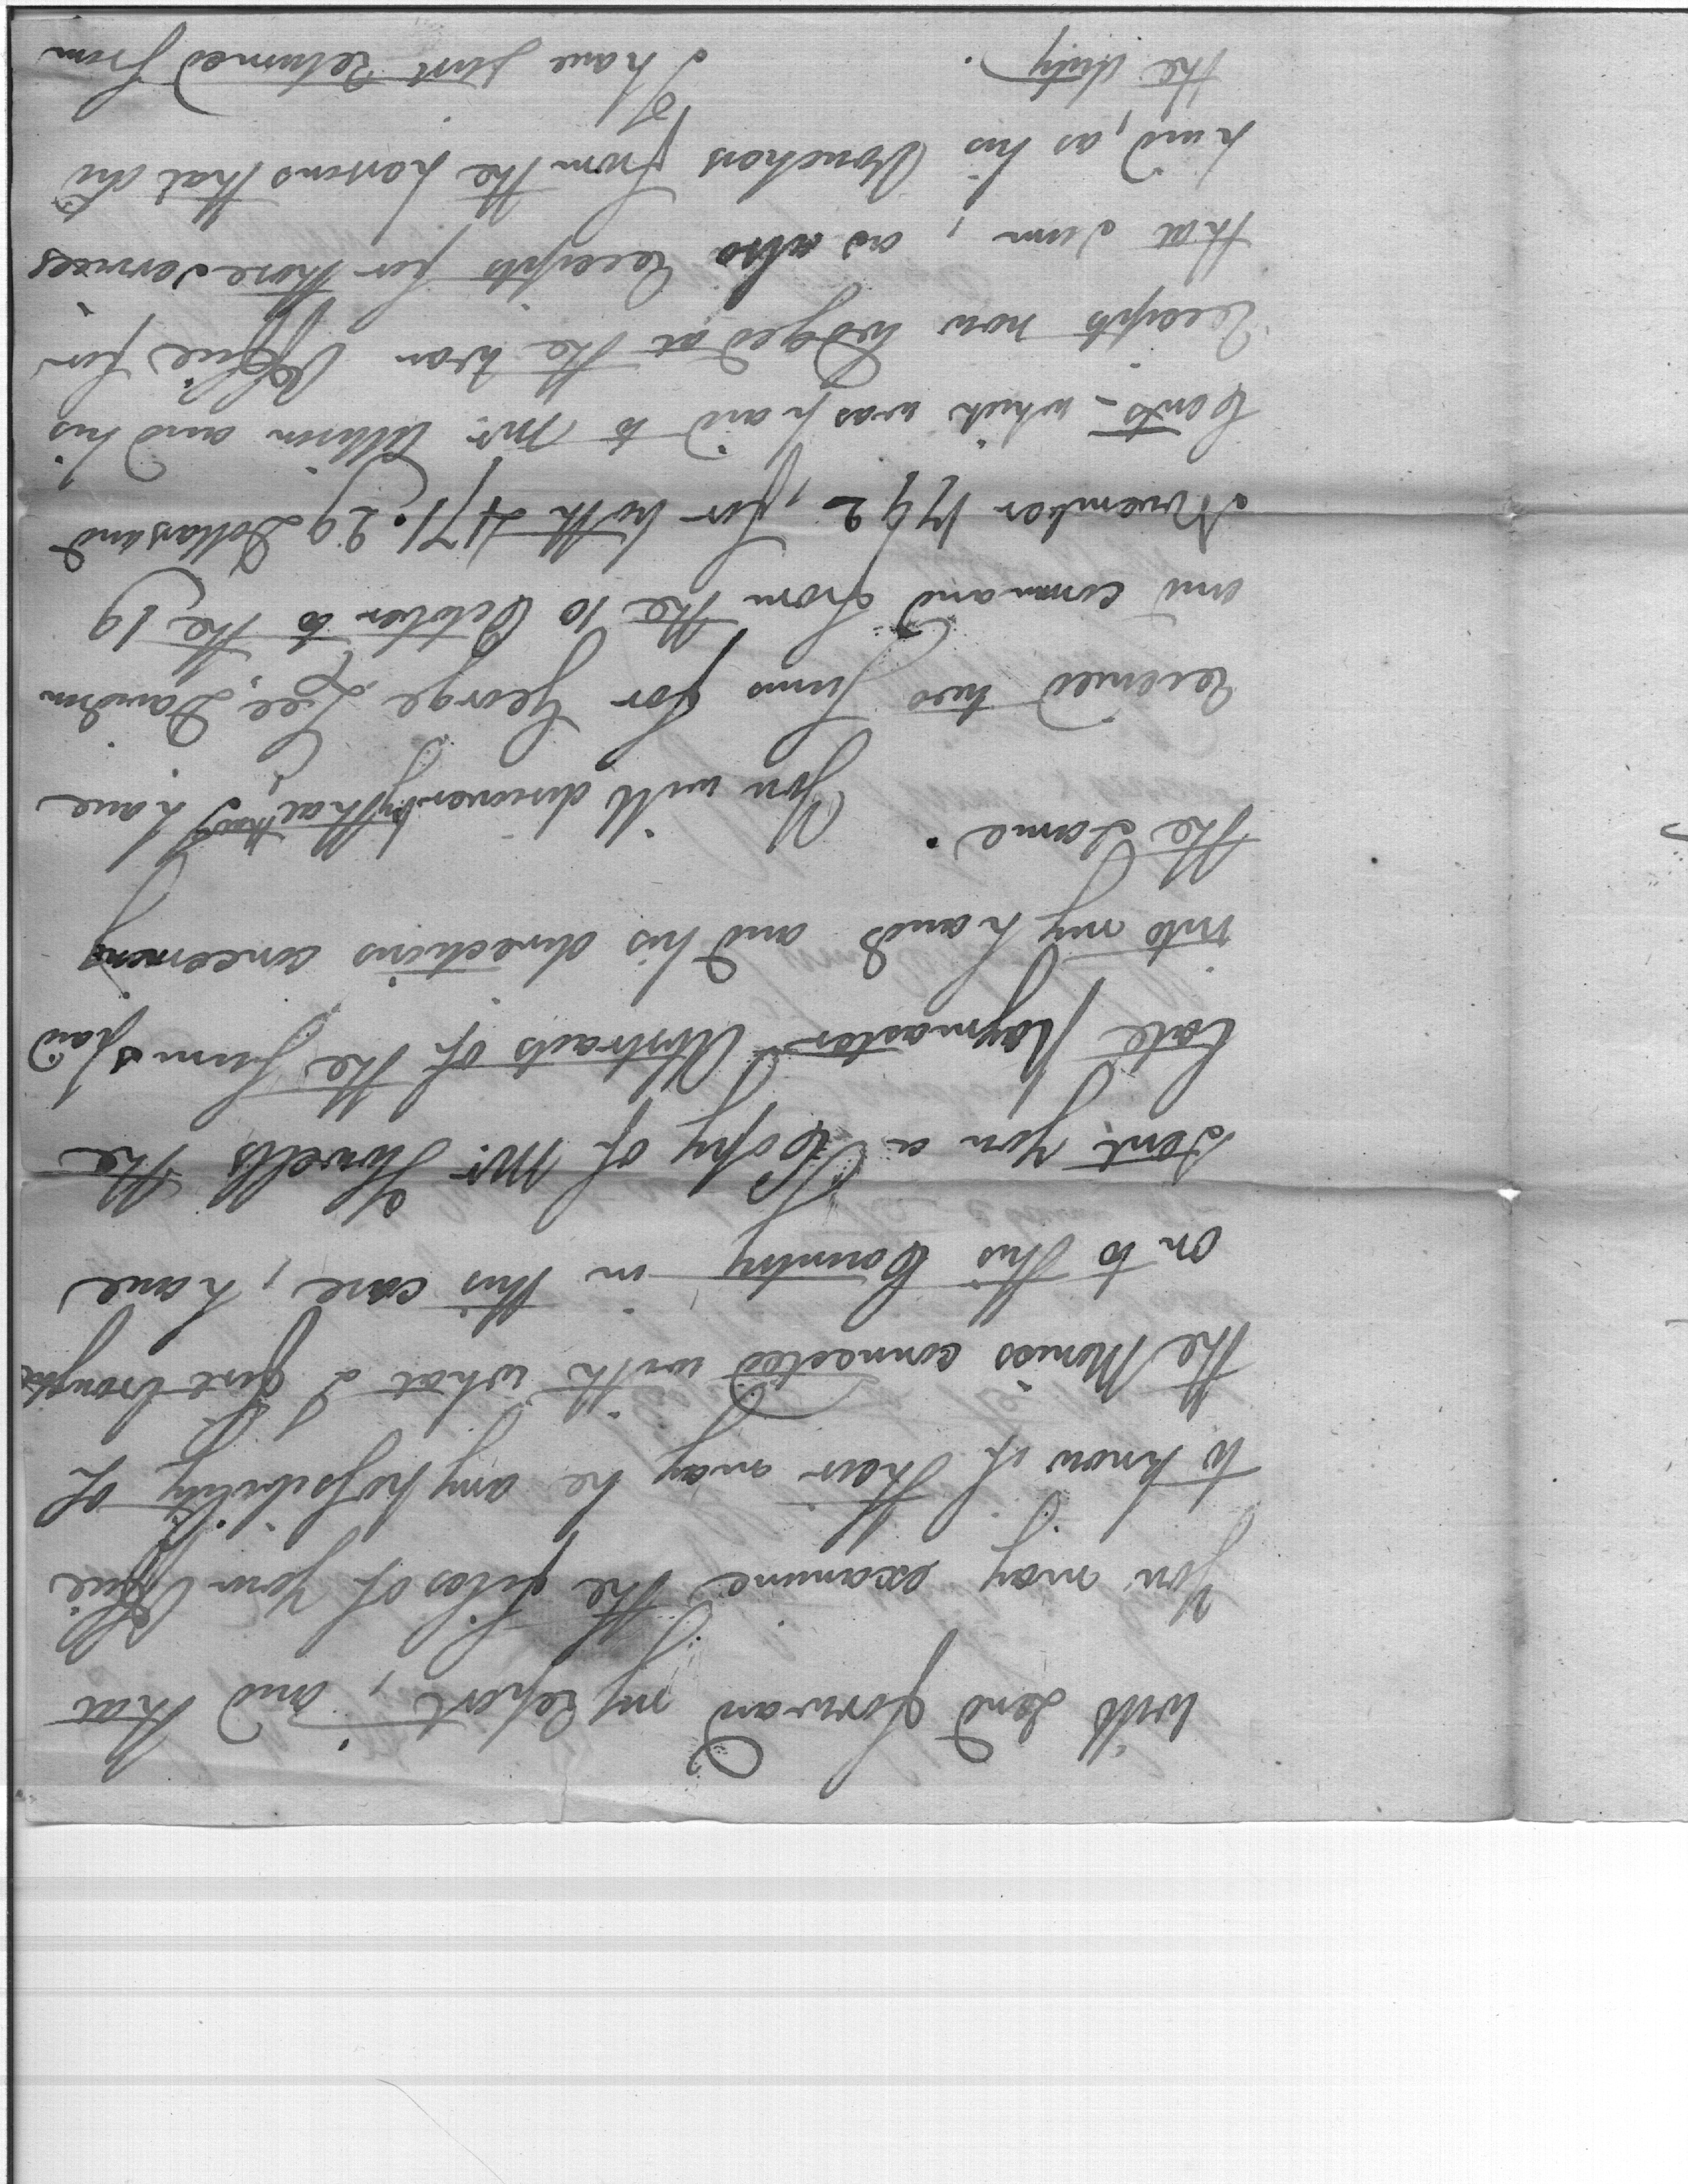 will send forward my Report, and that
you may examine the files of your Office
to know if their may be any possibility of
the Monies connected with what I first brought
on to this Country in this case, have
sent you a Copy of Mr. Howells the
late Paymaster Abstracts of the sums paid
into my hands and his directions concerning
the same. You will discover by that, that I have
Received two sums for George Lee Davidson
and command from the 10 October to the 19
November 1792, for both 471.29 Dollars and
Cents - which was paid to Mr. Allison and his
Receipts now lodged at the War Office for
that sum, as also Receipts for those services
paid, as his Vouchers from the persons that did
the duty. I have just Returned from